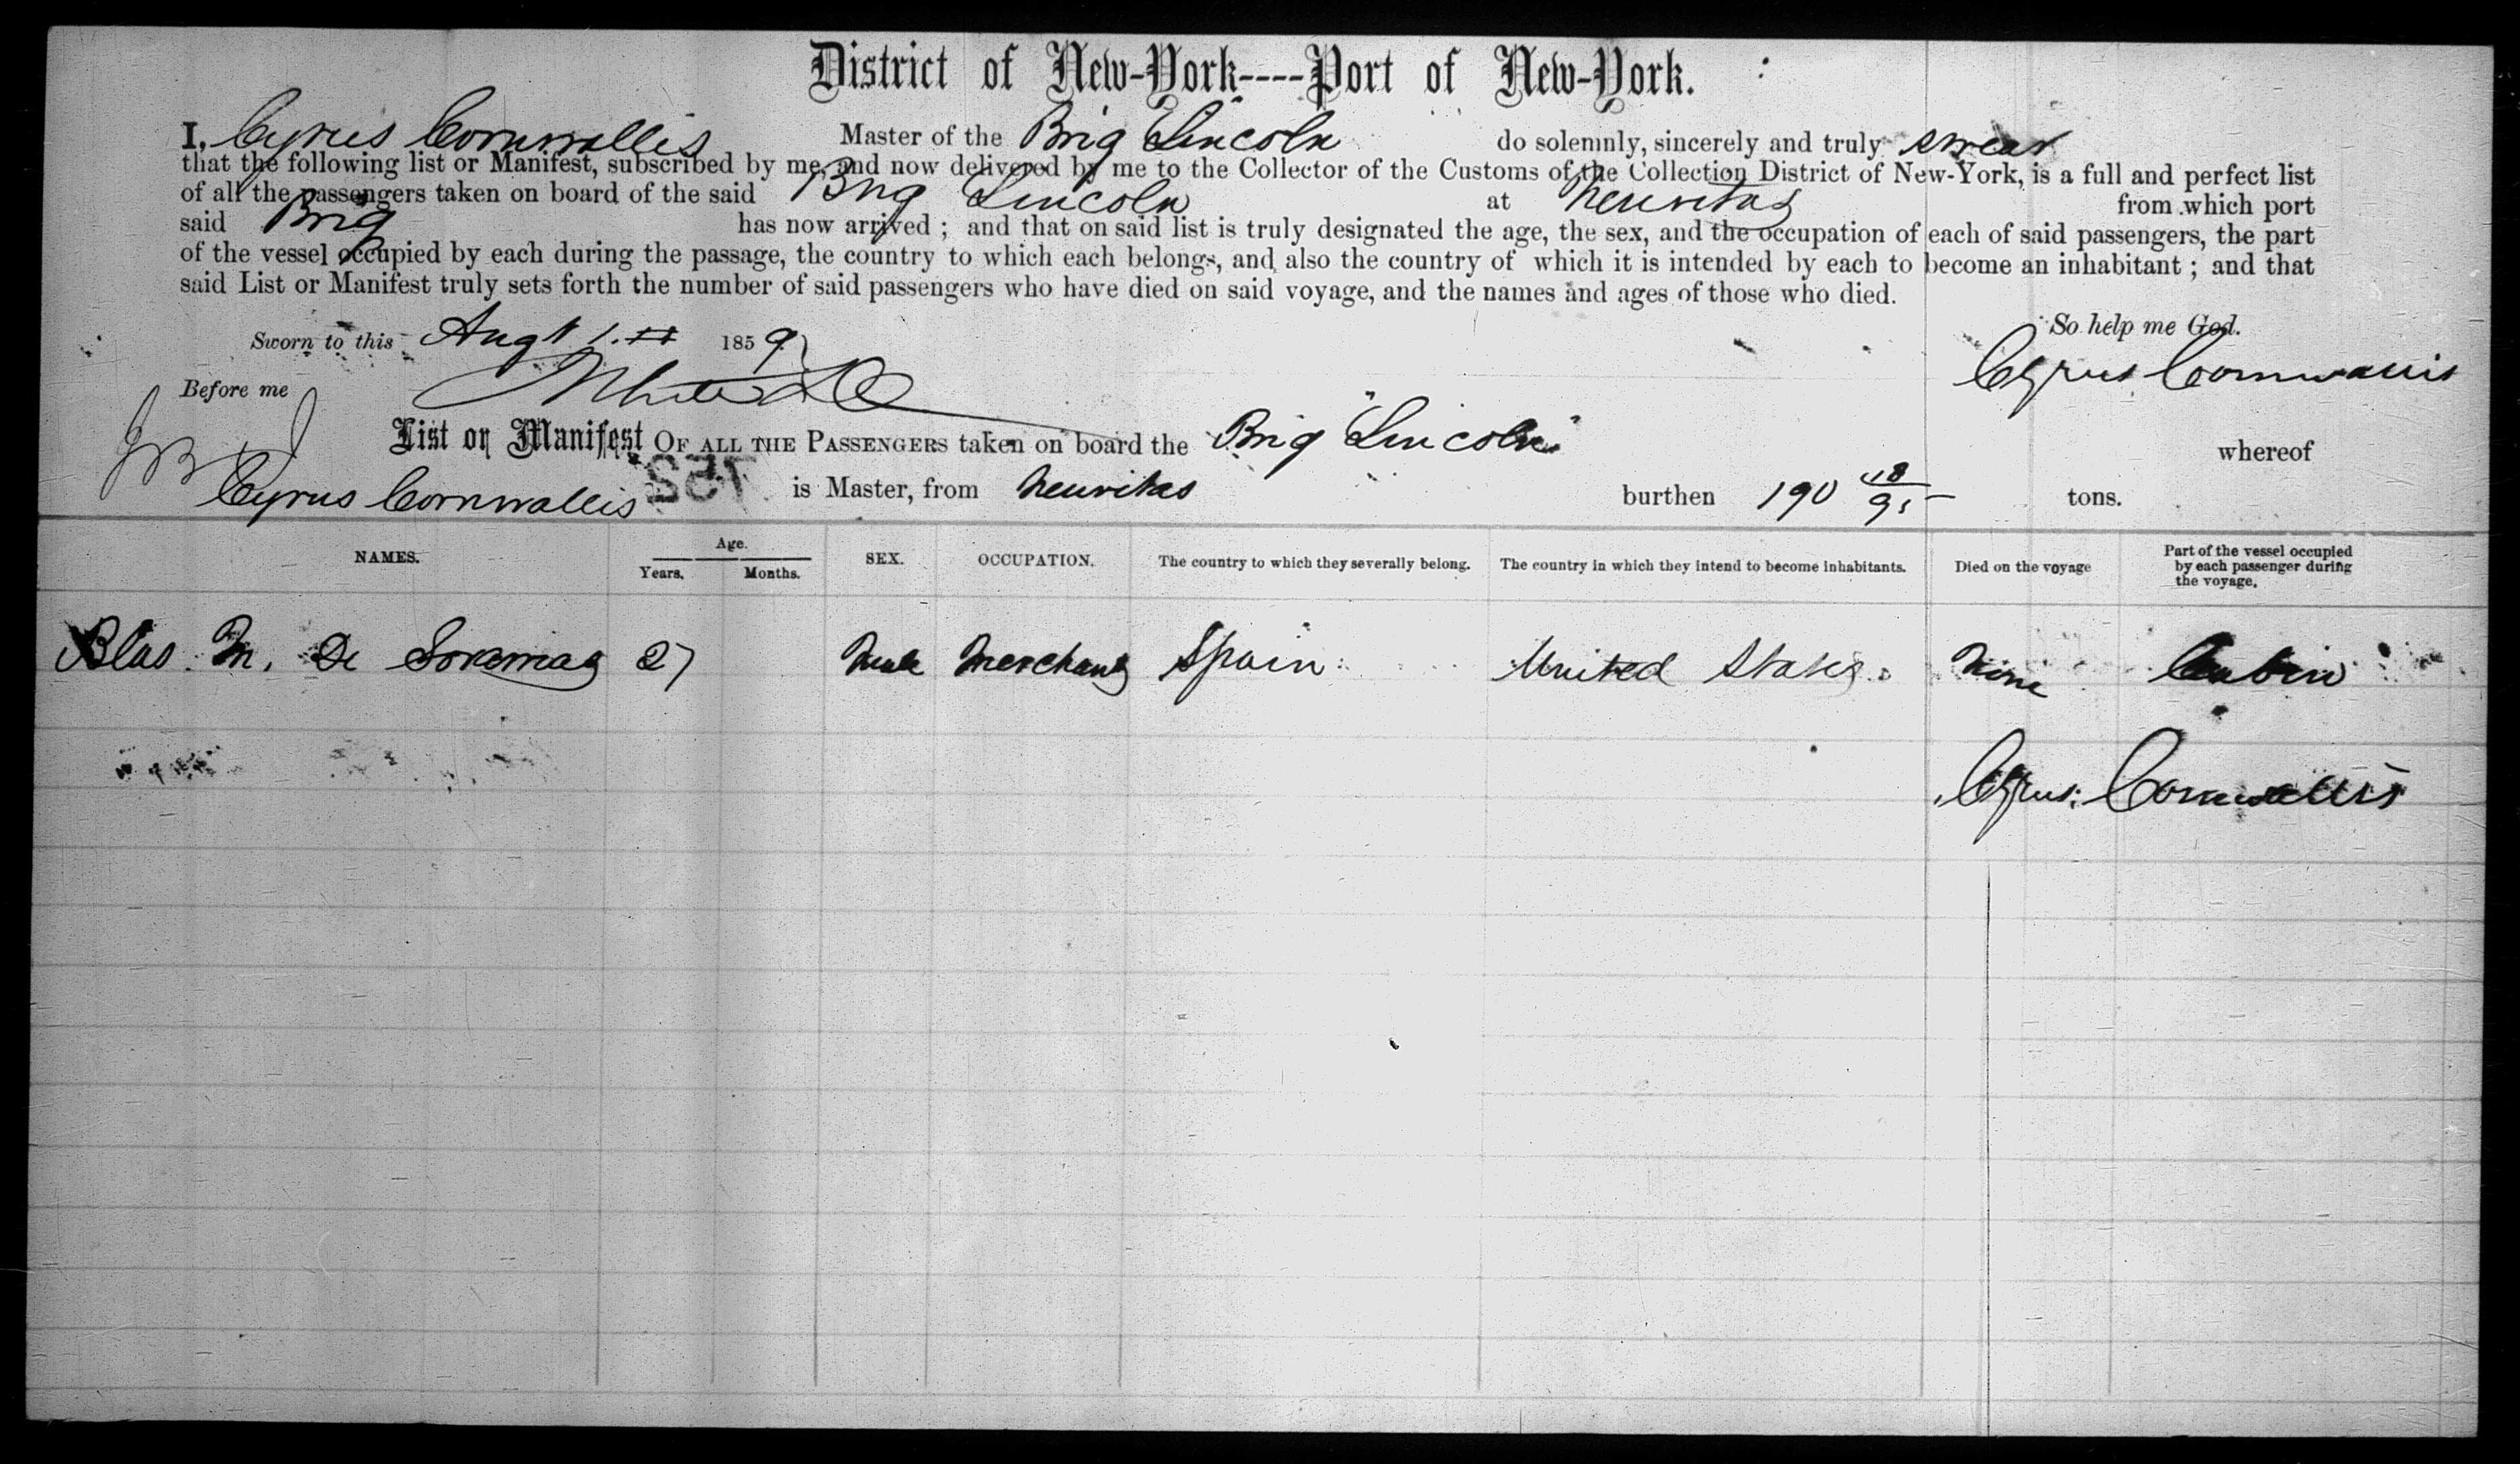 District of New-York----Port of New-York.
I, Cyrus Cornwallis Master of the Brig Lincoln do solemnly, sincerely and truly swear
that the following list or Manifest, subscribed by me, and now delivered by me to the Collector of the Customs of the Collection District of New-York, is a full and perfect list
of all the passengers taken on board of the said Brig Lincoln at Neuvitas from which port
said Brig has now arrived ; and that on said list is truly designated the age, the sex, and the occupation of each of said passengers, the part
of the vessel occupied by each during the passage, the country to which each belongs, and also the country of which it is intended by each to become an inhabitant ; and that
said List or Manifest truly sets forth the number of said passengers who have died on said voyage, and the names and ages of those who died.
So help me God.
Sworn to this Augt 1. 1859
Cyrus Cornwallis
Before me
List or Manifest OF ALL THE PASSENGERS taken on board the Brig "Lincoln" whereof
Cyrus Cornwallis 752 is Master, from Neuvitas burthen 190 48/95 tons.
NAMES. Age. Years. Months. SEX. OCCUPATION. The country to which they severally belong. The country in which they intend to become inhabitants. Died on the voyage Part of the vessel occupied by each passenger during the voyage.
Blas. M. De 27 Male Merchant Spain United States. None Cabin
Cyrus Cornwallis